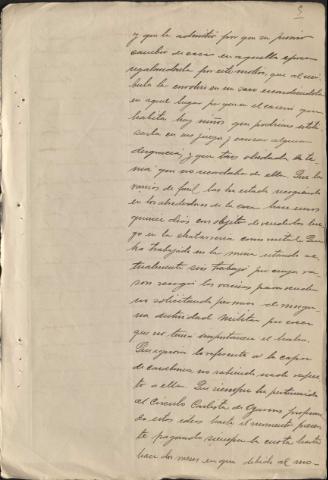 y que la admitió por que su primo
cambió de casa en aquella época
regalandosela por este motivo, que al reci
birla la envolvió en un saco escondiendola
en aquel lugar por que en el caserío que
habita hay niños que podrían utili
zarla en sus juegos y causar alguna
desgracia, y que tenia olvidada la te
nia que no recordaba de ella. Que los
vacios de fusil los ha estado recogiendo
en los alrededores de la casa hace unos
quince días con objeto de venderlos lue
go en la chatarreria como metal. Que
ha trabajado en la mina estando ac
tualmente sin trabajo por cuya ra
zon recogió los vacios para vender
sin solicitar permiso de ninguna
autoridad Militar por creer
que no tenia importancia el hecho.
Que ignora lo referente a la
de carabinas no sabiendo nada respec
to a ella. Que siempre ha pertenecido
al Circulo Carlista de profesan
do estas ideas hasta el momento presen
te pagando siempre la cuota hasta
hace dos meses en que debido al no-